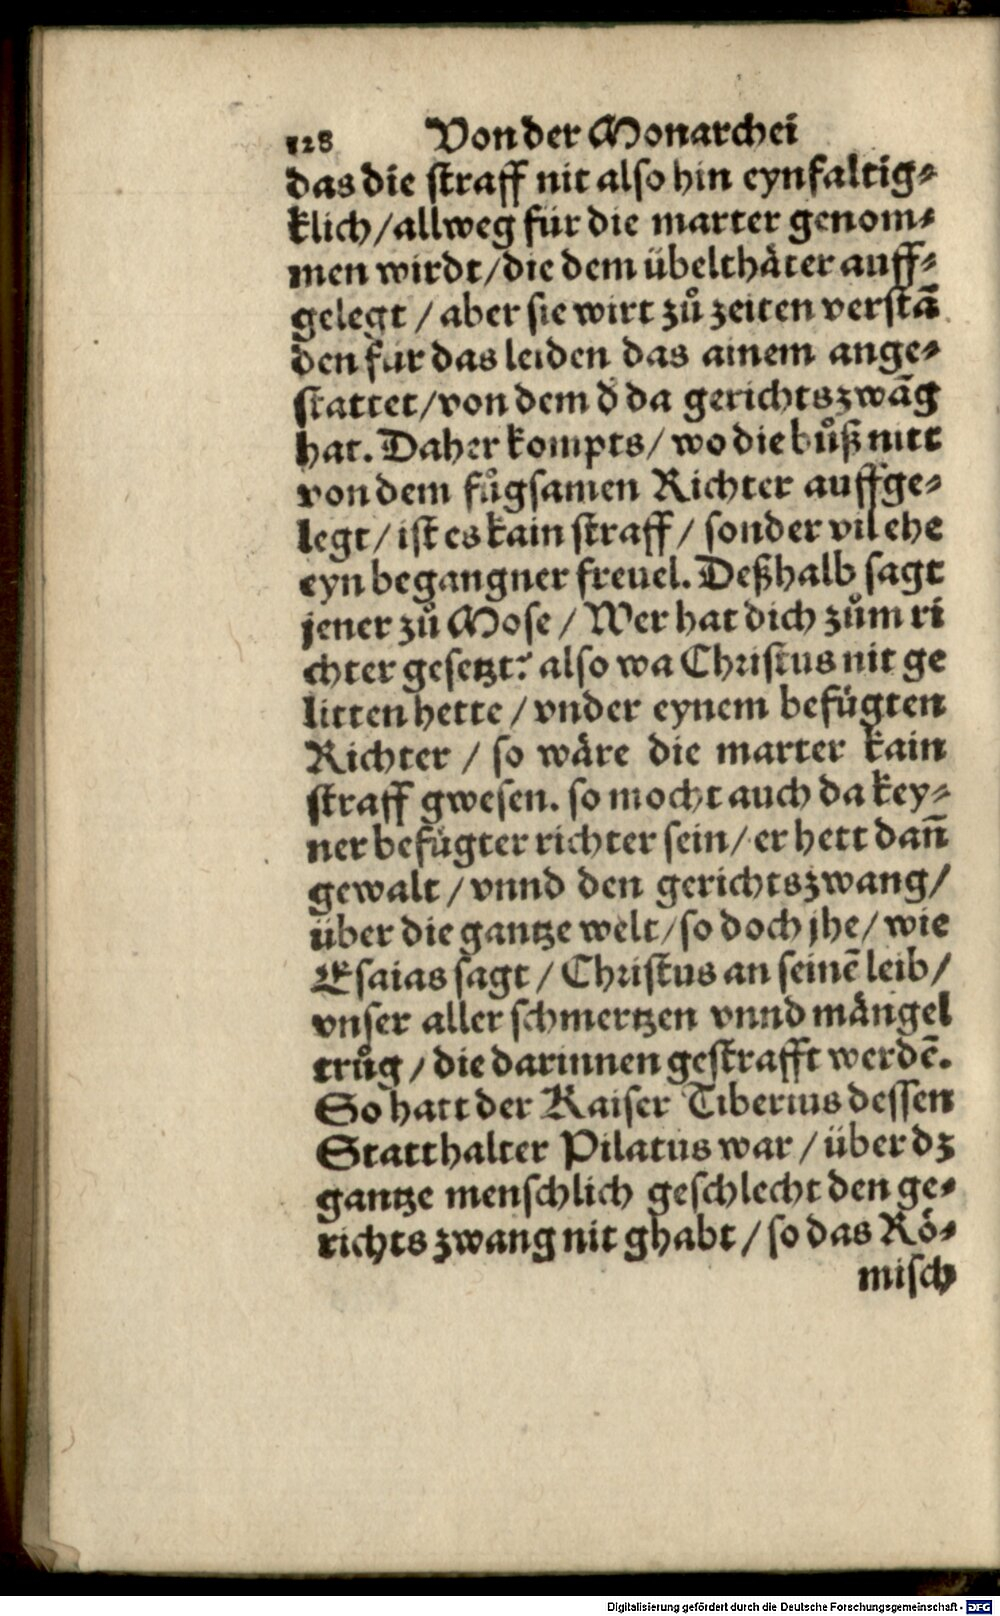 128 Von der Monarchei
das die straff nit also hin eynfaltig⸗
klich / allweg für die marter genom⸗
men wirdt / die dem übelthäter auff⸗
gelegt / aber sie wirt zů zeiten verstā
den für das leiden das ainem ange⸗
stattet / von dem d̄ da gerichtszwāg
hat. Daher kompts / wo die bůß nitt
von dem fůgsamen Richter auffge⸗
legt / ist es kain straff / sonder vil ehe
eyn begangner freuel. Deßhalb sagt
jener zů Mose / Wer hat dich zům ri
chter gesetzt? also wa Christus nit ge
litten hette / vnder eynem befügten
Richter / so wäre die marter kain
straff gwesen. so mocht auch da key⸗
ner befügter richter sein / er hett dañ
gewalt / vnnd den gerichtszwang /
über die gantze welt / so doch jhe / wie
Esaias sagt / Christus an seinē leib /
vnser aller schmertzen vnnd mängel
trůg / die darinnen gestrafft werdē.
So hatt der Kaiser Tiberius dessen
Statthalter Pilatus war / über dz
gantze menschlich geschlecht den ge⸗
richts zwang nit ghabt / so das Rö⸗
misch
Digitalisierung gefördert durch die Deutsche Forschungsgemeinschaft - DFG